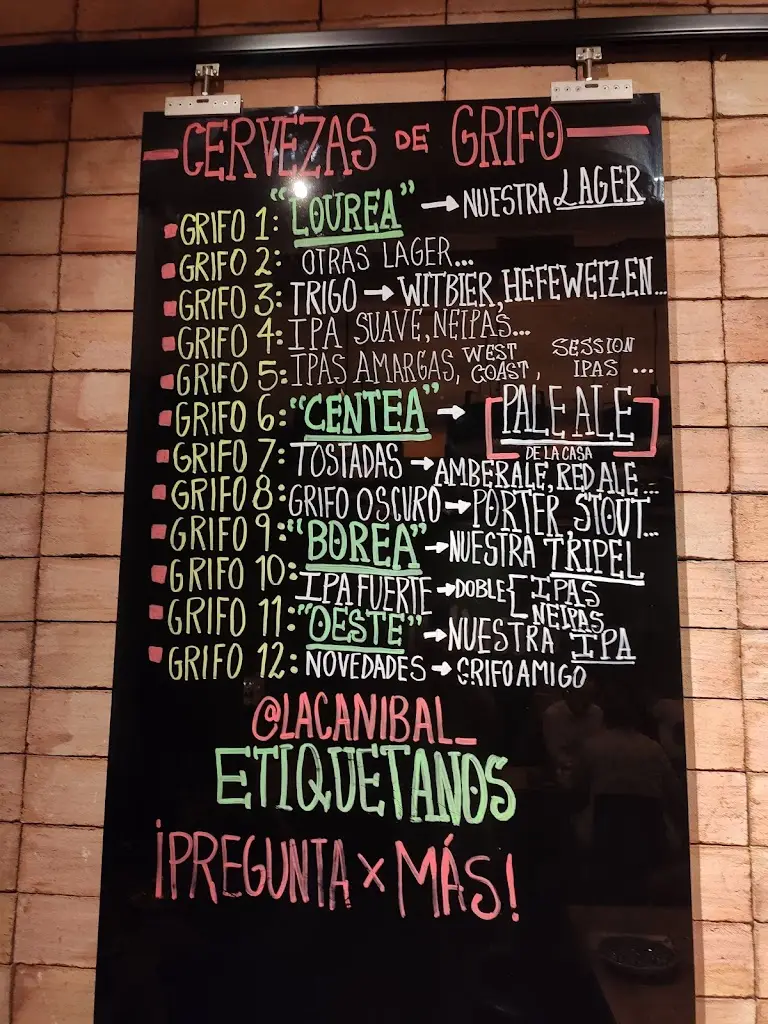 CERVEZAS DE GRIFO
GRIFO 1: "LOUREA" → NUESTRA LAGER
GRIFO 2: OTRAS LAGER...
GRIFO 3: TRIGO → WITBIER, HEFEWEIZEN...
GRIFO 4: IPA SUAVE, NEIPAS...
GRIFO 5: IPAS AMARGAS, WEST COAST, SESSION IPAS ...
GRIFO 6: "CENTEA" → [PALE ALE]
DE LA CASA
GRIFO 7: TOSTADAS → AMBER ALE, RED ALE...
GRIFO 8: GRIFO OSCURO → PORTER, STOUT...
GRIFO 9: "BOREA" → NUESTRA TRIPEL
GRIFO 10: IPA FUERTE → DOBLE { IPAS NEIPAS
GRIFO 11: "OESTE" → NUESTRA IPA
GRIFO 12: NOVEDADES → GRIFO AMIGO
@LACANIBAL_
ETIQUETANOS
¡PREGUNTA X MÁS!